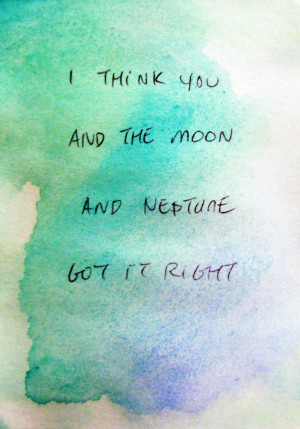 I THINK YOU
AND THE MOON
AND NEPTUNE
GOT IT RIGHT